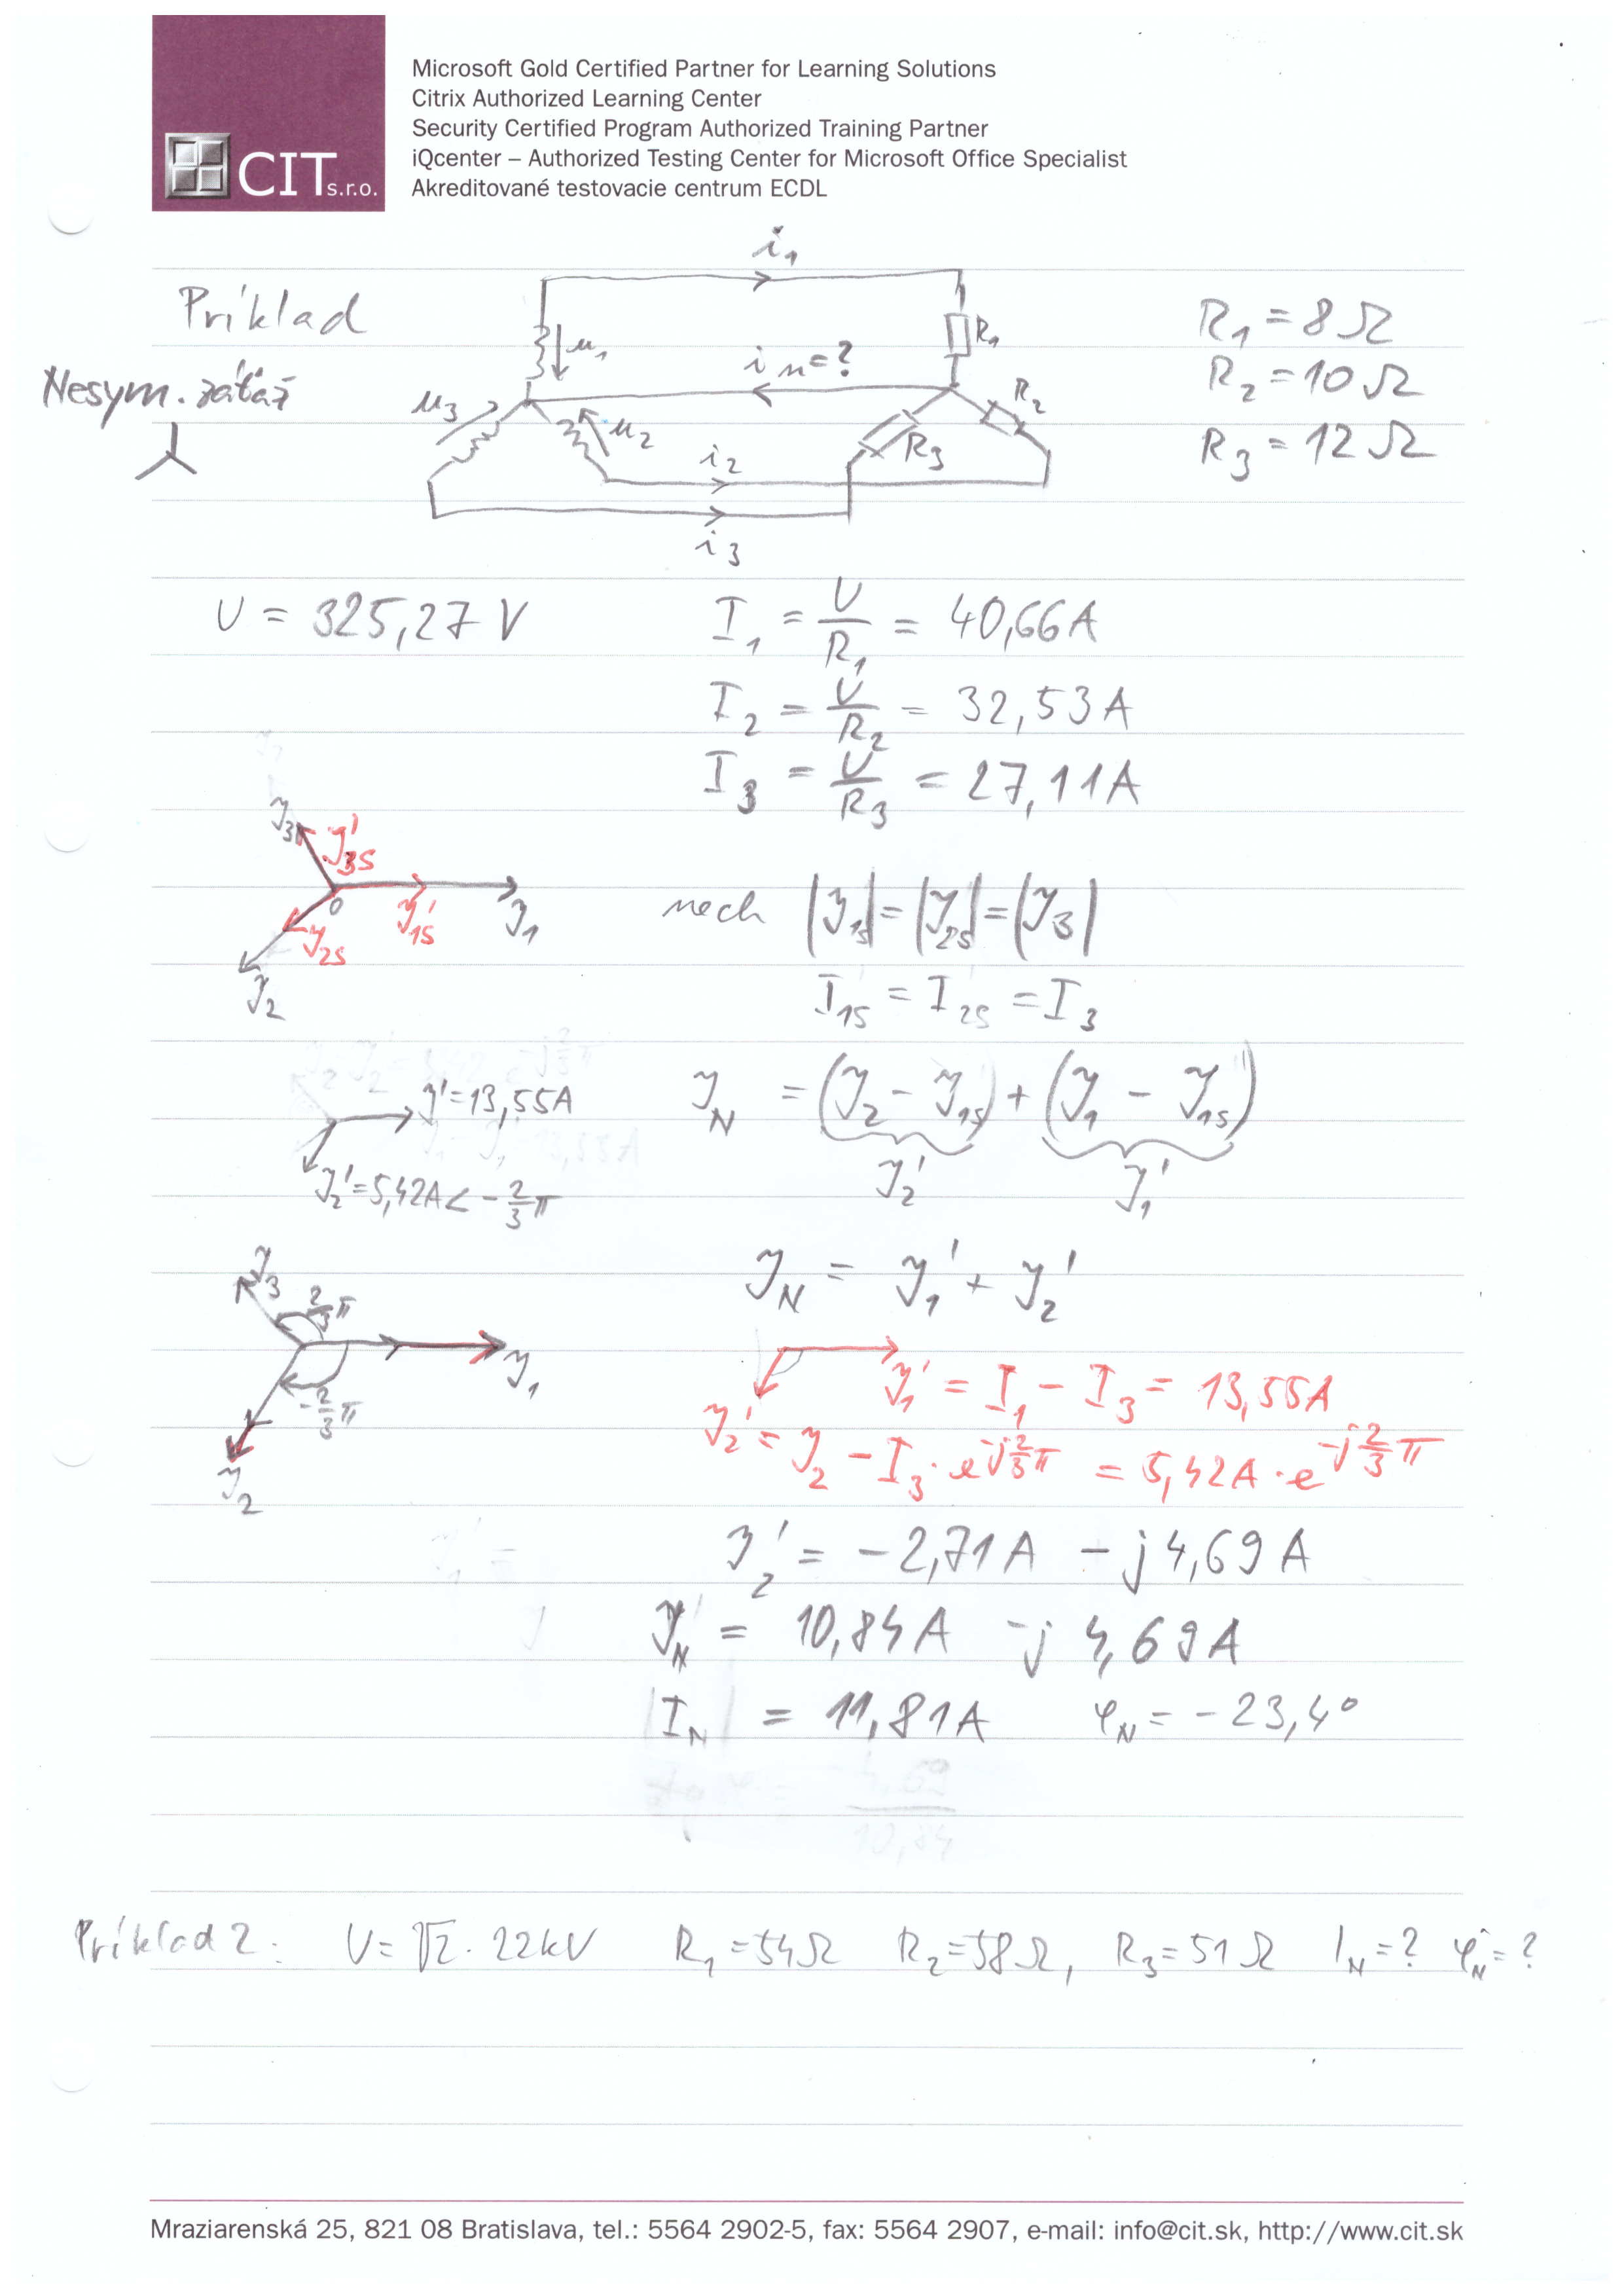 Microsoft Gold Certified Partner for Learning Solutions
Citrix Authorized Learning Center
Security Certified Program Authorized Training Partner
iQcenter – Authorized Testing Center for Microsoft Office Specialist
Akreditované testovacie centrum ECDL
CIT s.r.o.
i₁
Príklad
R₁ = 8 Ω
u₁
R₁
iₙ=?
Nesym. záťaž
u₃
u₂
R₂
R₂ = 10 Ω
R₃
R₃ = 12 Ω
i₂
i₃
U = 325,27 V
I₁ = U/R₁ = 40,66A
I₂ = U/R₂ = 32,53A
I₃ = U/R₃ = 27,11A
J₃
J'₃S
0
J'₁S
J₁
J₂S
J₂
nech |J₁S| = |J₂S| = |J₃|
I₁S = I₂S = I₃
J' = 13,55A
J₂' = 5,42A < -2/3 π
J_N = (J₂ - J₁S) + (J₁ - J₁S)
J₂' J₁'
J_N = J₁' + J₂'
J₃
2/3 π
J₁
-2/3 π
J₂
J₁' = I₁ - I₃ = 13,55A
J₂' = J₂ - I₃ · e^-j2/3 π = 5,42A · e^-j2/3 π
J₂' = -2,71A - j4,69A
J_N = 10,84A - j 4,69A
|I_N| = 11,81A φ_N = -23,4°
Príklad 2: U = √2 · 22kV R₁ = 54Ω R₂ = 58Ω, R₃ = 51Ω I_N = ? φ_N = ?
Mraziarenská 25, 821 08 Bratislava, tel.: 5564 2902-5, fax: 5564 2907, e-mail: info@cit.sk, http://www.cit.sk